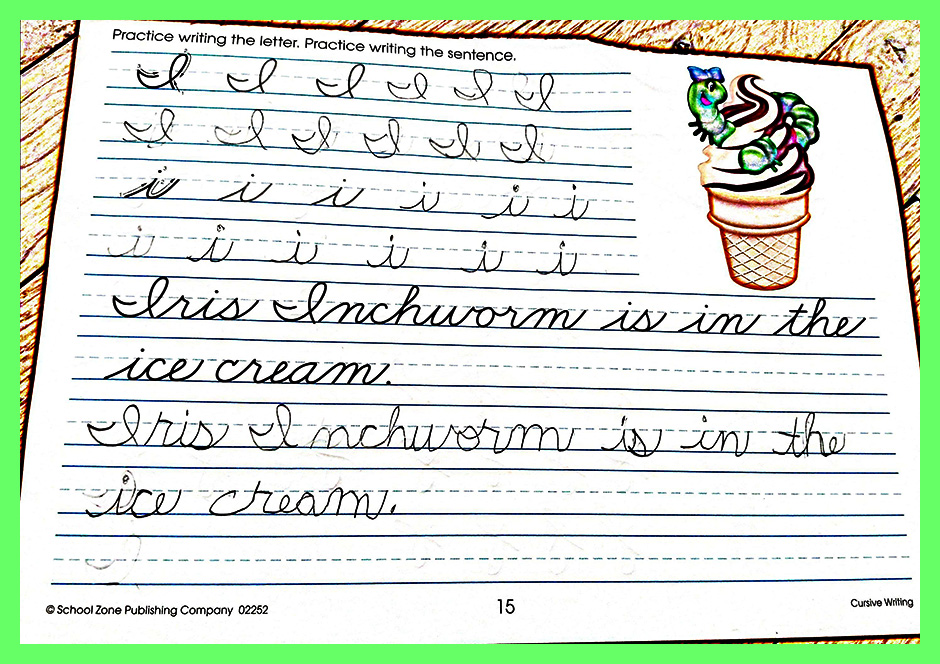 Practice writing the letter. Practice writing the sentence.
I I I I I I
I I I I I I
i i i i i i
i i i i i i
Iris Inchworm is in the
ice cream.
Iris Inchworm is in the
ice cream.
© School Zone Publishing Company 02252 15 Cursive Writing